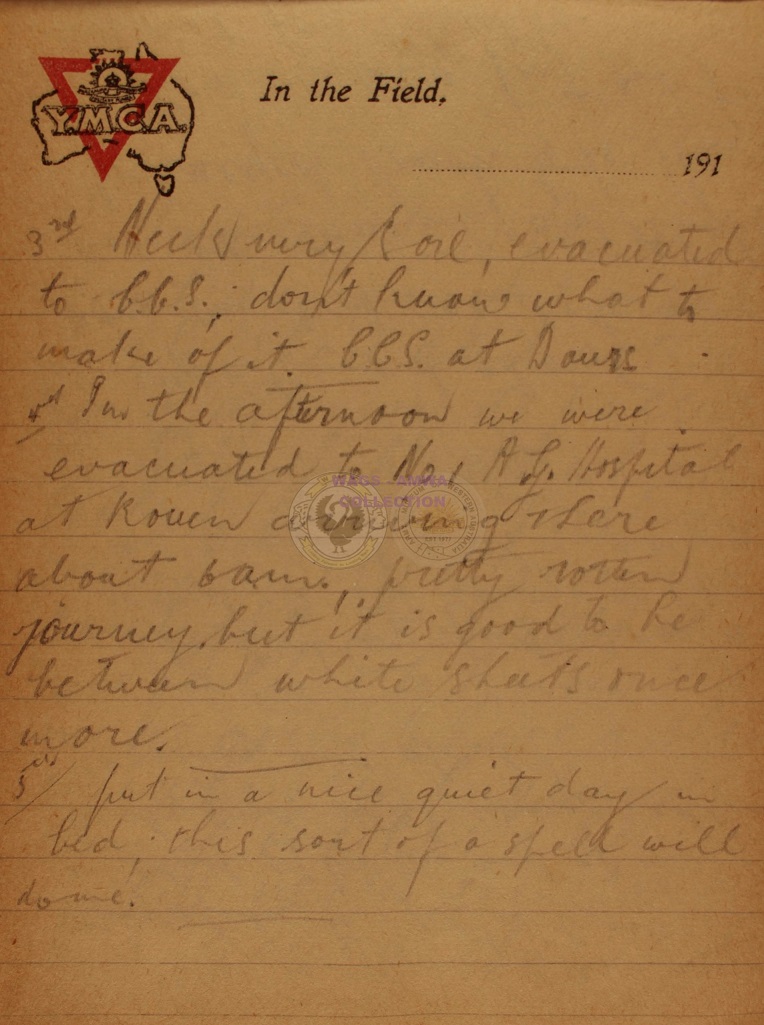 Y.M.C.A.
In the Field.
191
3rd Neck very sore, evacuated
to C.C.S. don't know what to
make of it. CCS. at Dours
4th In the afternoon we were
evacuated to No 1 A.G. Hospital
WAGS - AMWA
COLLECTION
at Rouen arriving there
about 6am., pretty rotten
journey, but it is good to be
between white sheets once
more.
5th put in a nice quiet day in
bed, this sort of a spell will
do me.